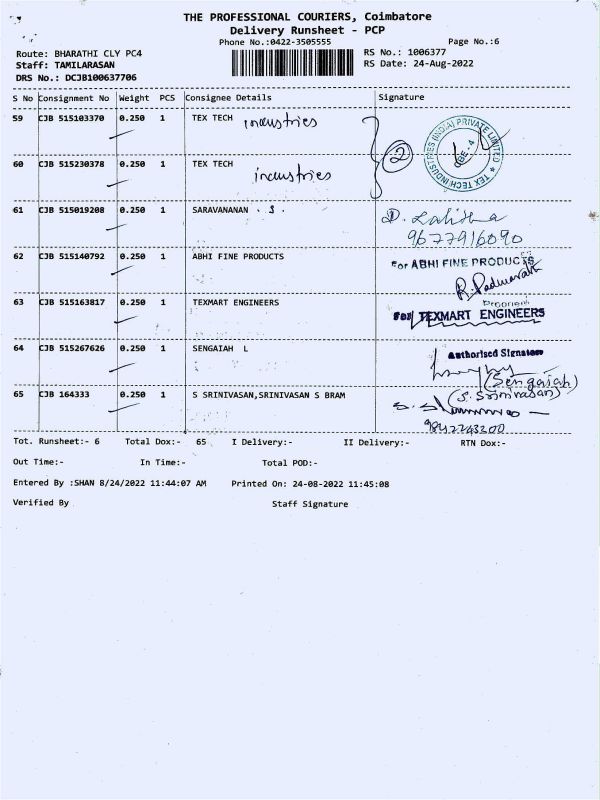 THE PROFESSIONAL COURIERS, Coimbatore
Delivery Runsheet - PCP
Phone No.:0422-3505555 Page No.:6
Route: BHARATHI CLY PC4 RS No.: 1006377
Staff: TAMILARASAN RS Date: 24-Aug-2022
DRS No.: DCJB100637706
S No Consignment No Weight PCS Consignee Details Signature
59 CJB 515103370 0.250 1 TEX TECH industries
TEX TECH INDUSTRIES (INDIA) PRIVATE LIMITED
2
60 CJB 515230378 0.250 1 TEX TECH
industries
61 CJB 515019208 0.250 1 SARAVANANAN . S . D. Lalitha
9677916090
62 CJB 515140792 0.250 1 ABHI FINE PRODUCTS For ABHI FINE PRODUCTS
R. Padmavathi
63 CJB 515163817 0.250 1 TEXMART ENGINEERS
For TEXMART ENGINEERS
64 CJB 515267626 0.250 1 SENGAIAH L Authorised Signatory
(Sengaiah)
65 CJB 164333 0.250 1 S SRINIVASAN,SRINIVASAN S BRAM (S. Srinivasan)
9842743200
Tot. Runsheet:- 6 Total Dox:- 65 I Delivery:- II Delivery:- RTN Dox:-
Out Time:- In Time:- Total POD:-
Entered By :SHAN 8/24/2022 11:44:07 AM Printed On: 24-08-2022 11:45:08
Verified By Staff Signature